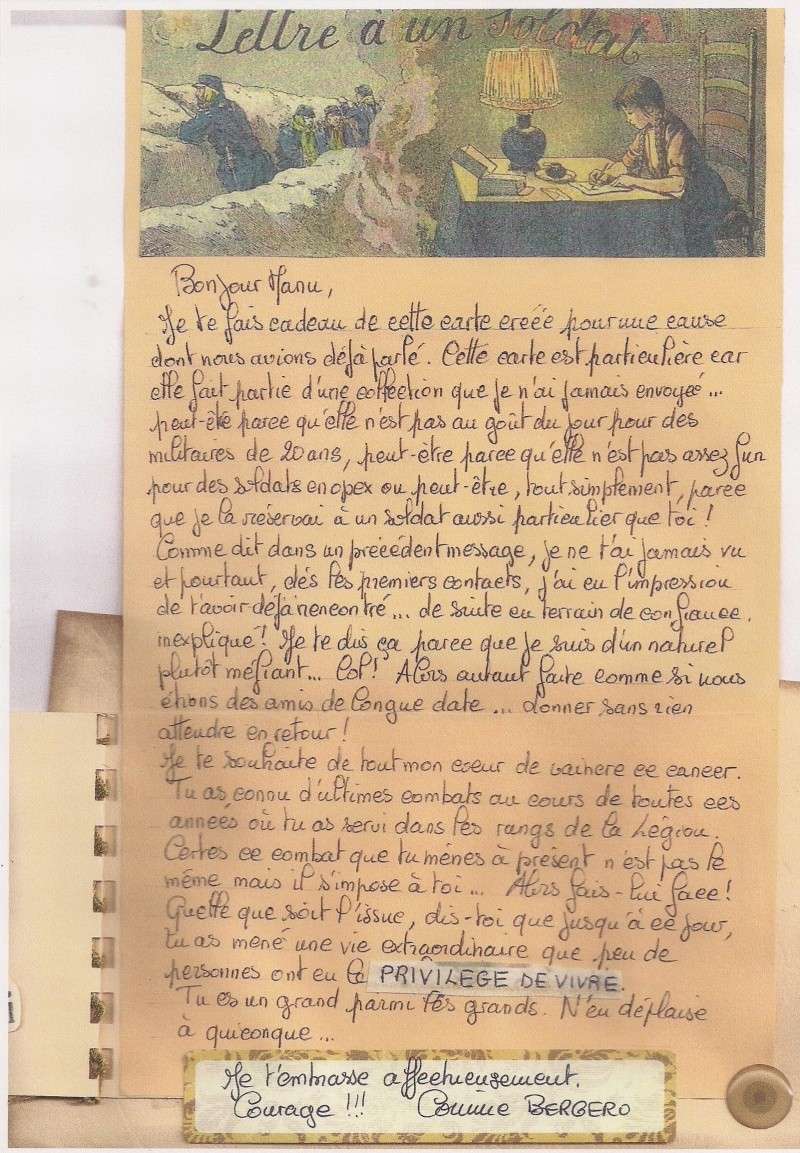 Lettre à un soldat
Bonjour Manu,
Je te fais cadeau de cette carte créée pour une cause
dont nous avions déjà parlé. Cette carte est particulière car
elle fait partie d'une collection que je n'ai jamais envoyée...
peut-être parce qu'elle n'est pas au goût du jour pour des
militaires de 20 ans, peut-être parce qu'elle n'est pas assez fun
pour des soldats en opex ou peut-être, tout simplement, parce
que je la réservai à un soldat aussi particulier que toi !
Comme dit dans un précédent message, je ne t'ai jamais vu
et pourtant, dés les premiers contacts, j'ai eu l'impression
de t'avoir déjà rencontré... de suite en terrain de confiance.
inexpliqué ! Je te dis ça parce que je suis d'un naturel
plutôt méfiant... Lol ! Alors autant faire comme si nous
étions des amis de longue date... donner sans rien
attendre en retour !
Je te souhaite de tout mon coeur de vaincre ce cancer.
Tu as connu d'ultimes combats au cours de toutes ces
années où tu as servi dans les rangs de la Légion.
Certes ce combat que tu mènes à présent n'est pas le
même mais il s'impose à toi... Alors fais-lui face !
Quelle que soit l'issue, dis-toi que jusqu'à ce jour,
tu as mené une vie extraordinaire que peu de
personnes ont eu le PRIVILEGE DE VIVRE.
Tu es un grand parmi les grands. N'en déplaise
à quiconque...
Je t'embrasse affectueusement.
Courage !!! Connie BERGERO